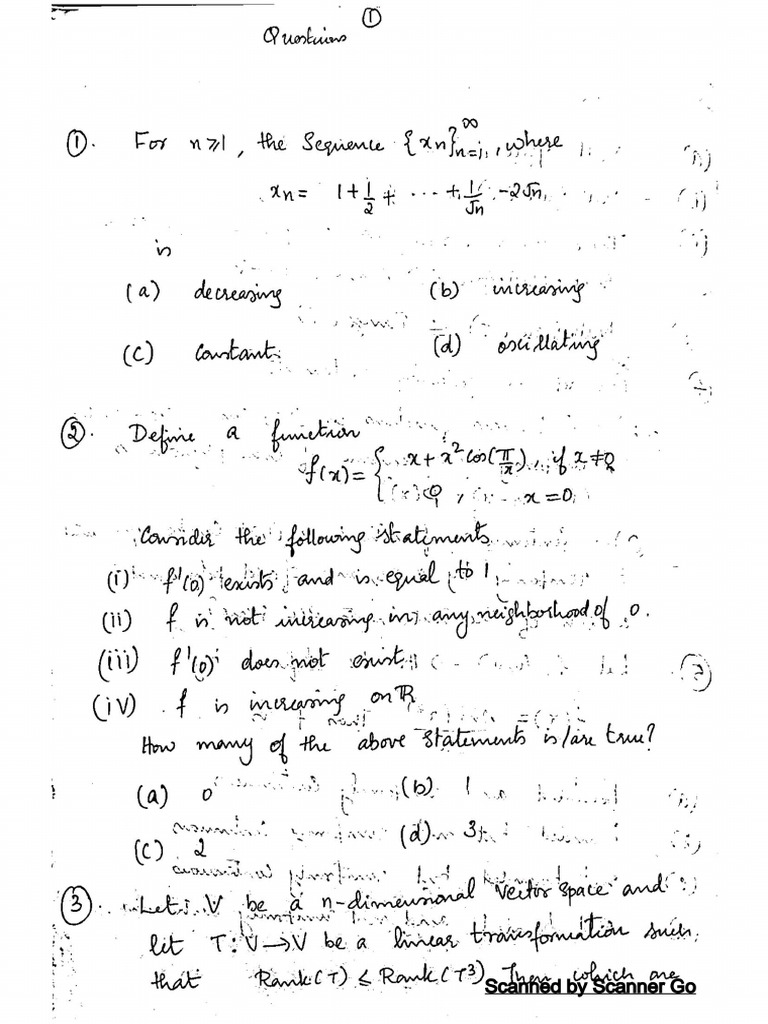 ①
Questions
①. For n≥1, the Sequence {xn}_{n=1}^∞, where
xn = 1+1/2+ ⋯ +1/√n -2√n
is
(a) decreasing (b) increasing
(c) constant (d) oscillating
②. Define a function
f(x)= { x+x²cos(π/x), if x≠0
0, x=0
Consider the following statements
(i) f'(0) exists and is equal to 1
(ii) f is not increasing in any neighborhood of 0.
(iii) f'(0) does not exist
(iv) f is increasing on ℝ
How many of the above statements is/are true?
(a) 0 (b) 1
(c) 2 (d) 3
③. Let V be a n-dimensional vector space and
let T: V→V be a linear transformation such
that Rank(T) ≤ Rank(T³) Then which are
Scanned by Scanner Go